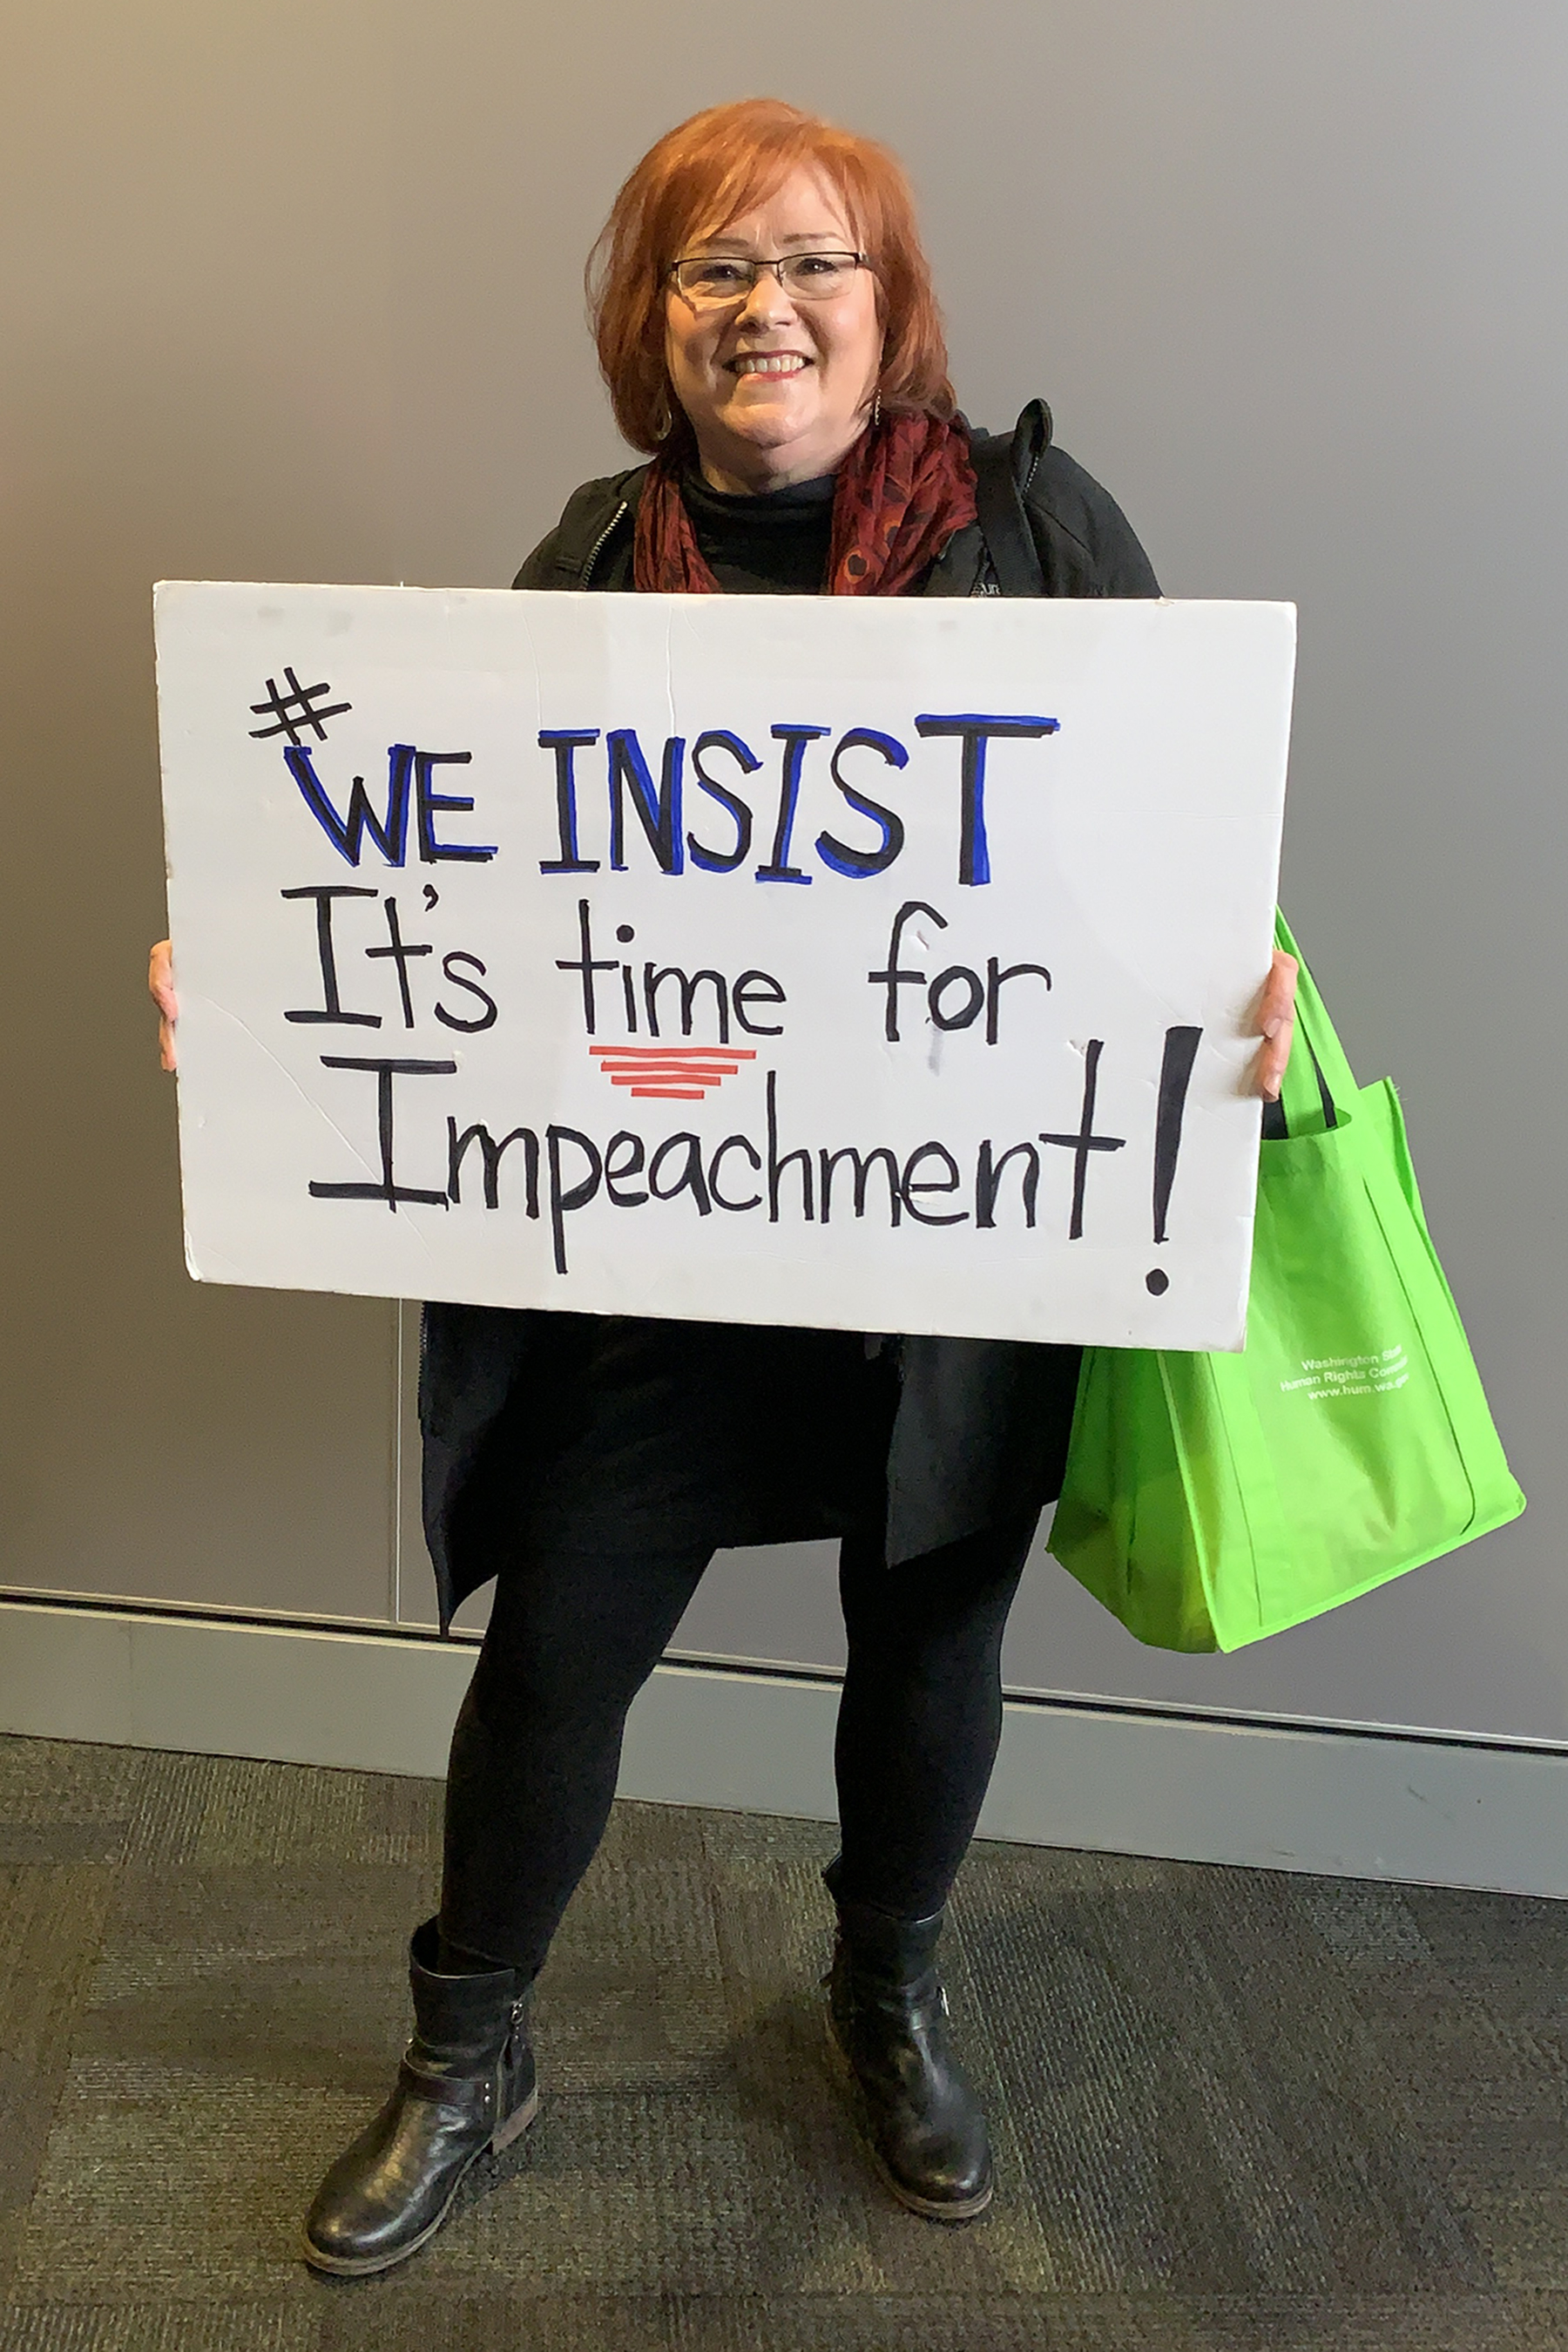 #
WE INSIST
It's time for
Impeachment!
Washington
Human Rights
www.hum.wa.gov